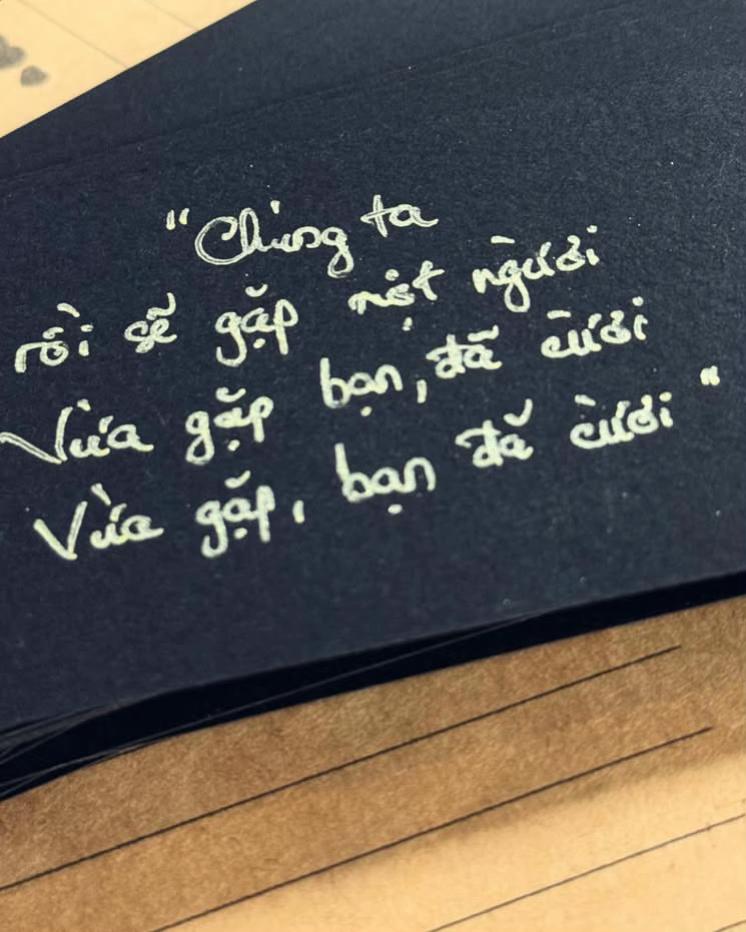 "Chúng ta
rồi sẽ gặp một người
Vừa gặp bạn, đã cười
Vừa gặp, bạn đã cười"